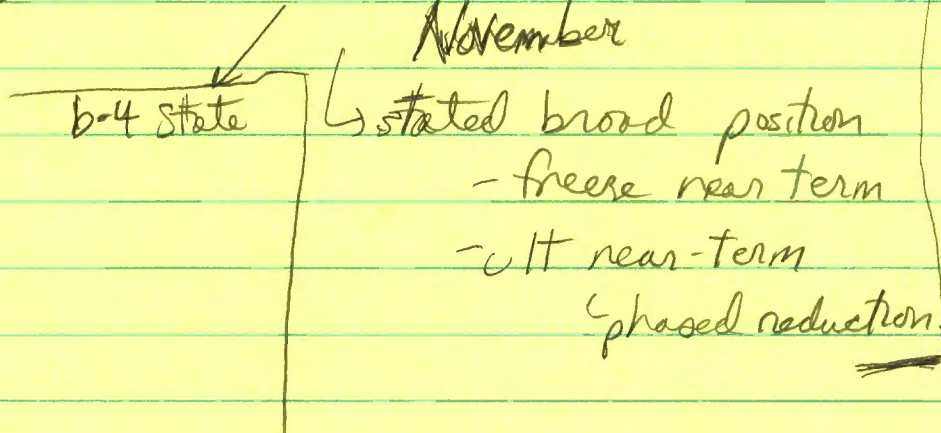 November
b-4 State
stated broad position
- freeze near term
- ult near-term
phased reduction.